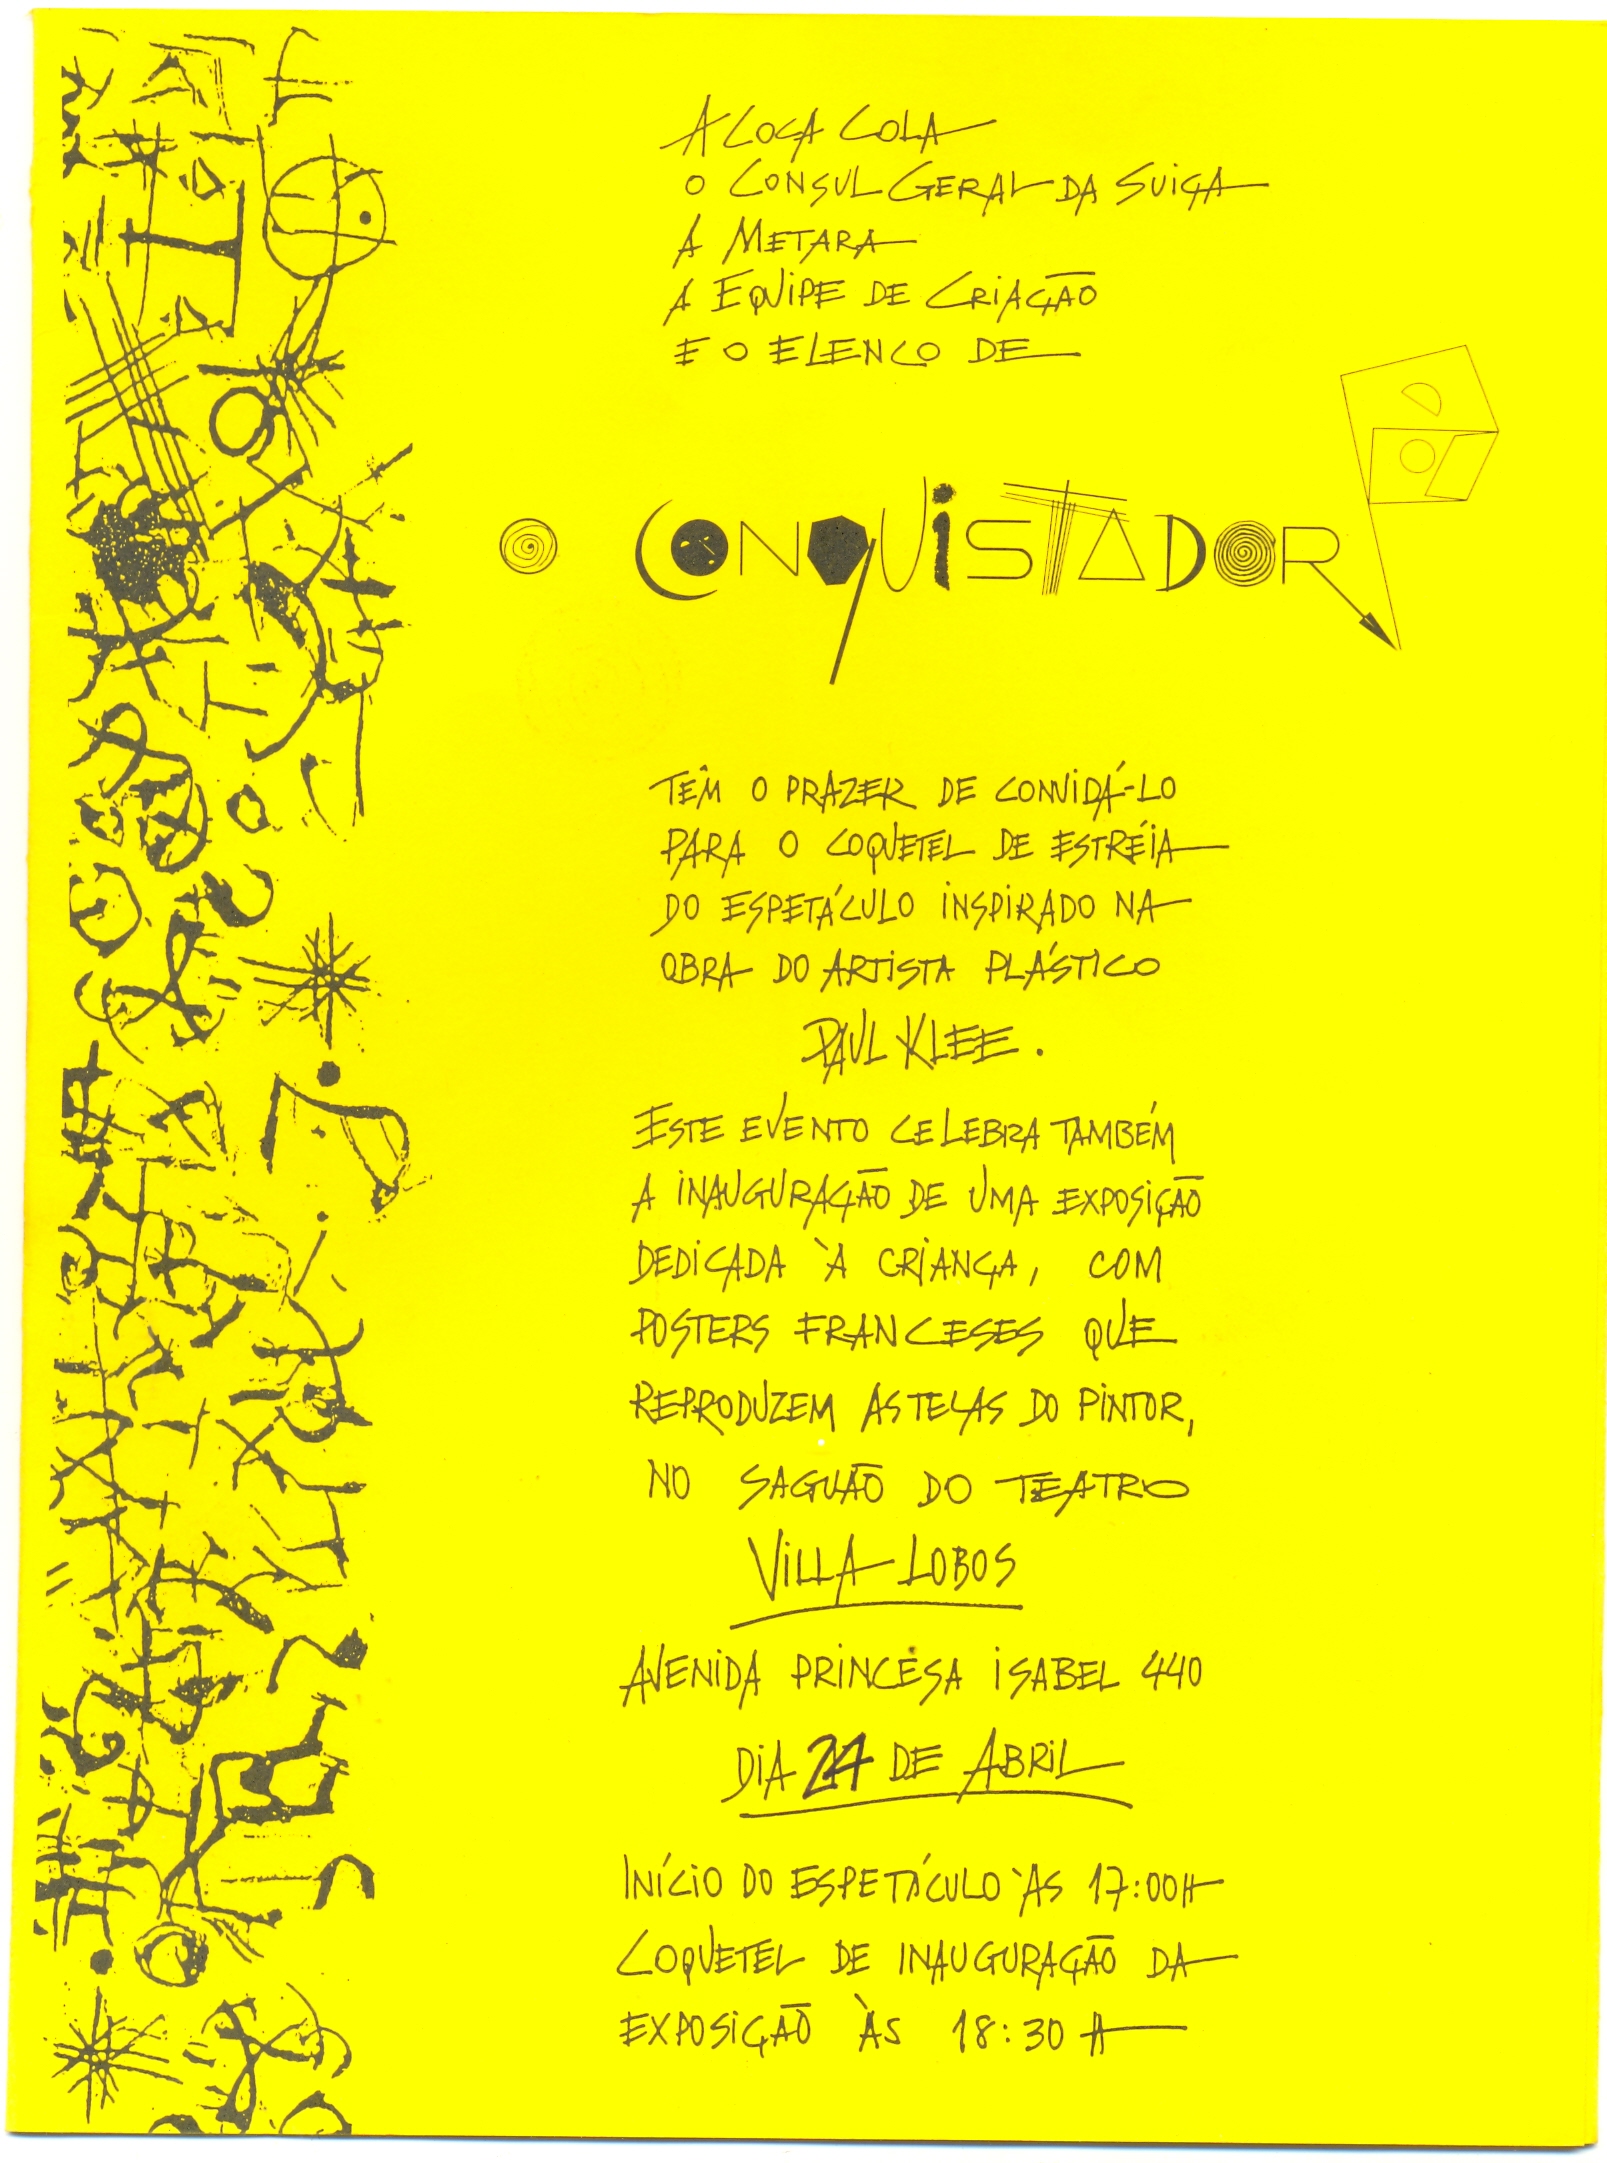 A COCA COLA
O CONSUL GERAL DA SUIÇA
A METARA
A EQUIPE DE CRIAÇÃO
E O ELENCO DE
O CONQUISTADOR
TÊM O PRAZER DE CONVIDÁ-LO
PARA O COQUETEL DE ESTRÉIA
DO ESPETÁCULO INSPIRADO NA
OBRA DO ARTISTA PLÁSTICO
PAUL KLEE.
ESTE EVENTO CELEBRA TAMBÉM
A INAUGURAÇÃO DE UMA EXPOSIÇÃO
DEDICADA À CRIANÇA, COM
POSTERS FRANCESES QUE
REPRODUZEM AS TELAS DO PINTOR,
NO SAGUÃO DO TEATRO
VILLA-LOBOS
AVENIDA PRINCESA ISABEL 440
DIA DE ABRIL
INÍCIO DO ESPETÁCULO ÀS 17:00H
COQUETEL DE INAUGURAÇÃO DA
EXPOSIÇÃO ÀS 18:30 H